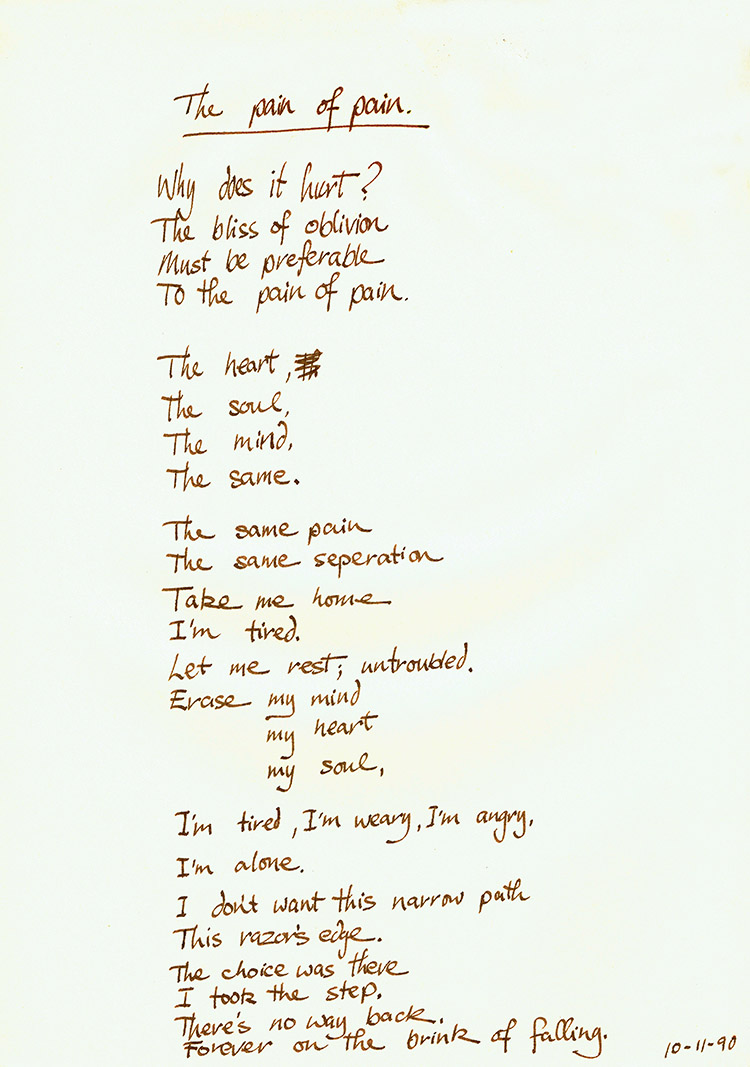 The pain of pain.
Why does it hurt?
The bliss of oblivion
Must be preferable
To the pain of pain.
The heart,
The soul,
The mind,
The same.
The same pain
The same seperation
Take me home
I'm tired.
Let me rest; untroubled.
Erase my mind
my heart
my soul,
I'm tired, I'm weary, I'm angry,
I'm alone.
I don't want this narrow path
This razor's edge.
The choice was there
I took the step.
There's no way back.
Forever on the brink of falling.
10-11-90